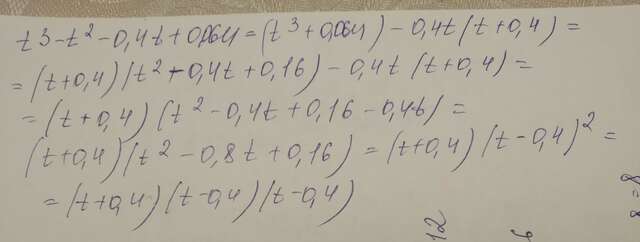 t3-t²-0,4t+0,064=(t³+0,064)-0,4t(t+0,4)=
=(t+0,4)(t²-0,4t+0,16)-0,4t(t+0,4)=
=(t+0,4)(t²-0,4t+0,16-0,4t)=
(t+0,4)(t²-0,8t+0,16)=(t+0,4)(t-0,4)²=
=(t+0,4)(t-0,4)(t-0,4)
12